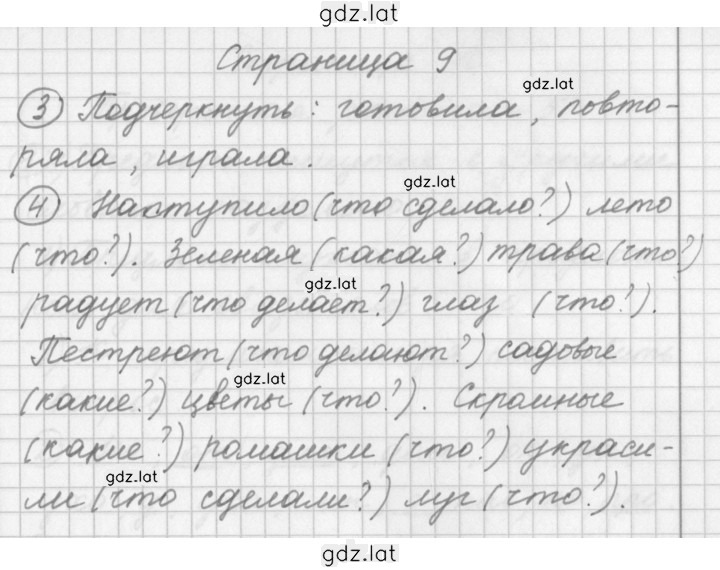 gdz.lat
Страница 9
gdz.lat
③ Подчеркнуть: готовила, повто-
ряла, играла.
gdz.lat
④ Наступило (что сделало?) лето
(что?). Зеленая (какая?) трава (что?)
gdz.lat
радует (что делает?) глаз (что?).
Пестреют (что делают?) садовые
gdz.lat
(какие?) цветы (что?). Скромные
(какие?) ромашки (что?) украси-
gdz.lat
ли (что сделали?) луг (что?).
gdz.lat